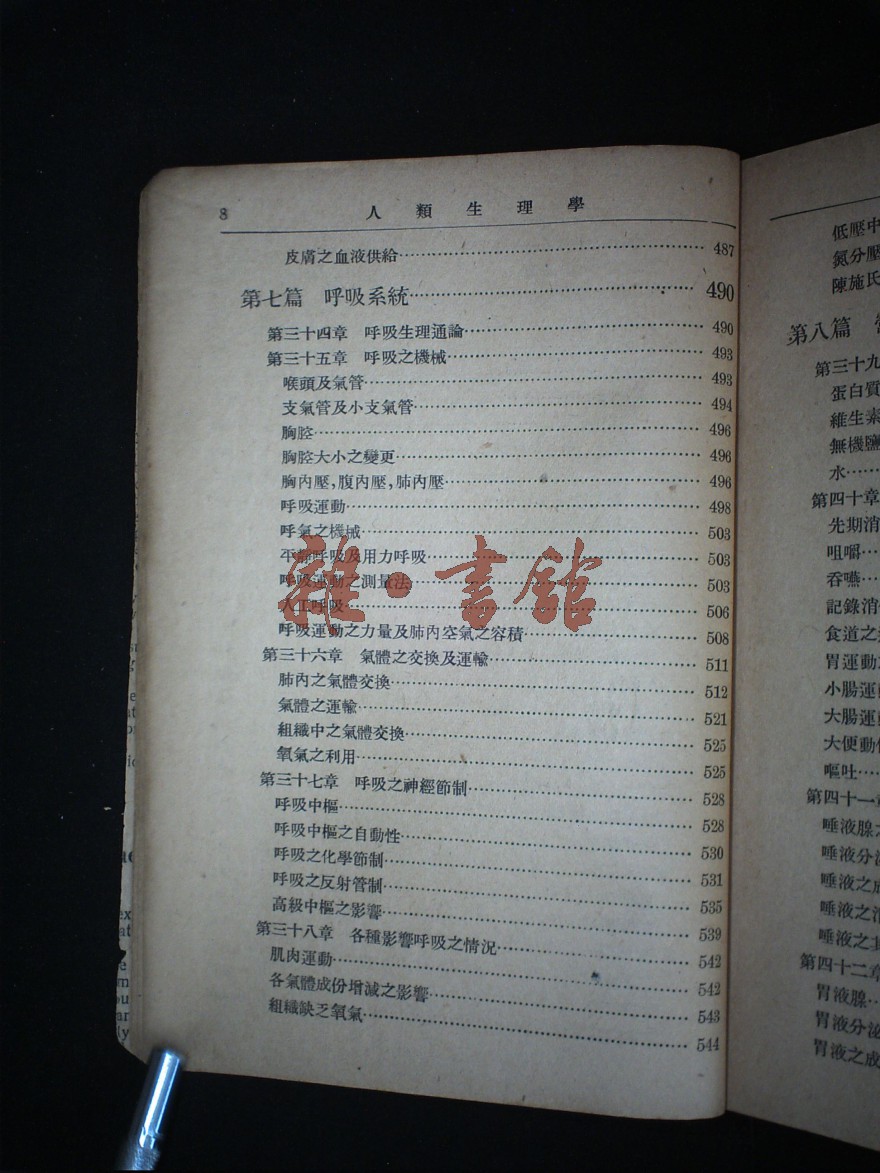 8 人類生理學
皮膚之血液供給 487
第七篇 呼吸系統 490
第三十四章 呼吸生理通論 490
第三十五章 呼吸之機械 493
喉頭及氣管 493
支氣管及小支氣管 494
胸腔 496
胸腔大小之變更 496
胸內壓,腹內壓,肺內壓 496
呼吸運動 498
呼氣之機械 503
平靜呼吸及用力呼吸 503
呼吸運動之測量法 503
人工呼吸 506
呼吸運動之力量及肺內空氣之容積 508
第三十六章 氣體之交換及運輸 511
肺內之氣體交換 512
氣體之運輸 521
組織中之氣體交換 525
氧氣之利用 525
第三十七章 呼吸之神經節制 528
呼吸中樞 528
呼吸中樞之自動性 530
呼吸之化學節制 531
呼吸之反射管制 535
高級中樞之影響 539
第三十八章 各種影響呼吸之情況 542
肌肉運動 542
各氣體成份增減之影響 543
組織缺乏氧氣 544
雜·書館
低壓中
氮分壓
陳施氏
第八篇
第三十九
蛋白質
維生素
無機鹽
水
第四十章
先期消
咀嚼
吞嚥
記錄消
食道之
胃運動
小腸運動
大腸運動
大便動
嘔吐
第四十一章
唾液腺
唾液分泌
唾液之成
唾液之消
唾液之
第四十二章
胃液腺
胃液分泌
胃液之成